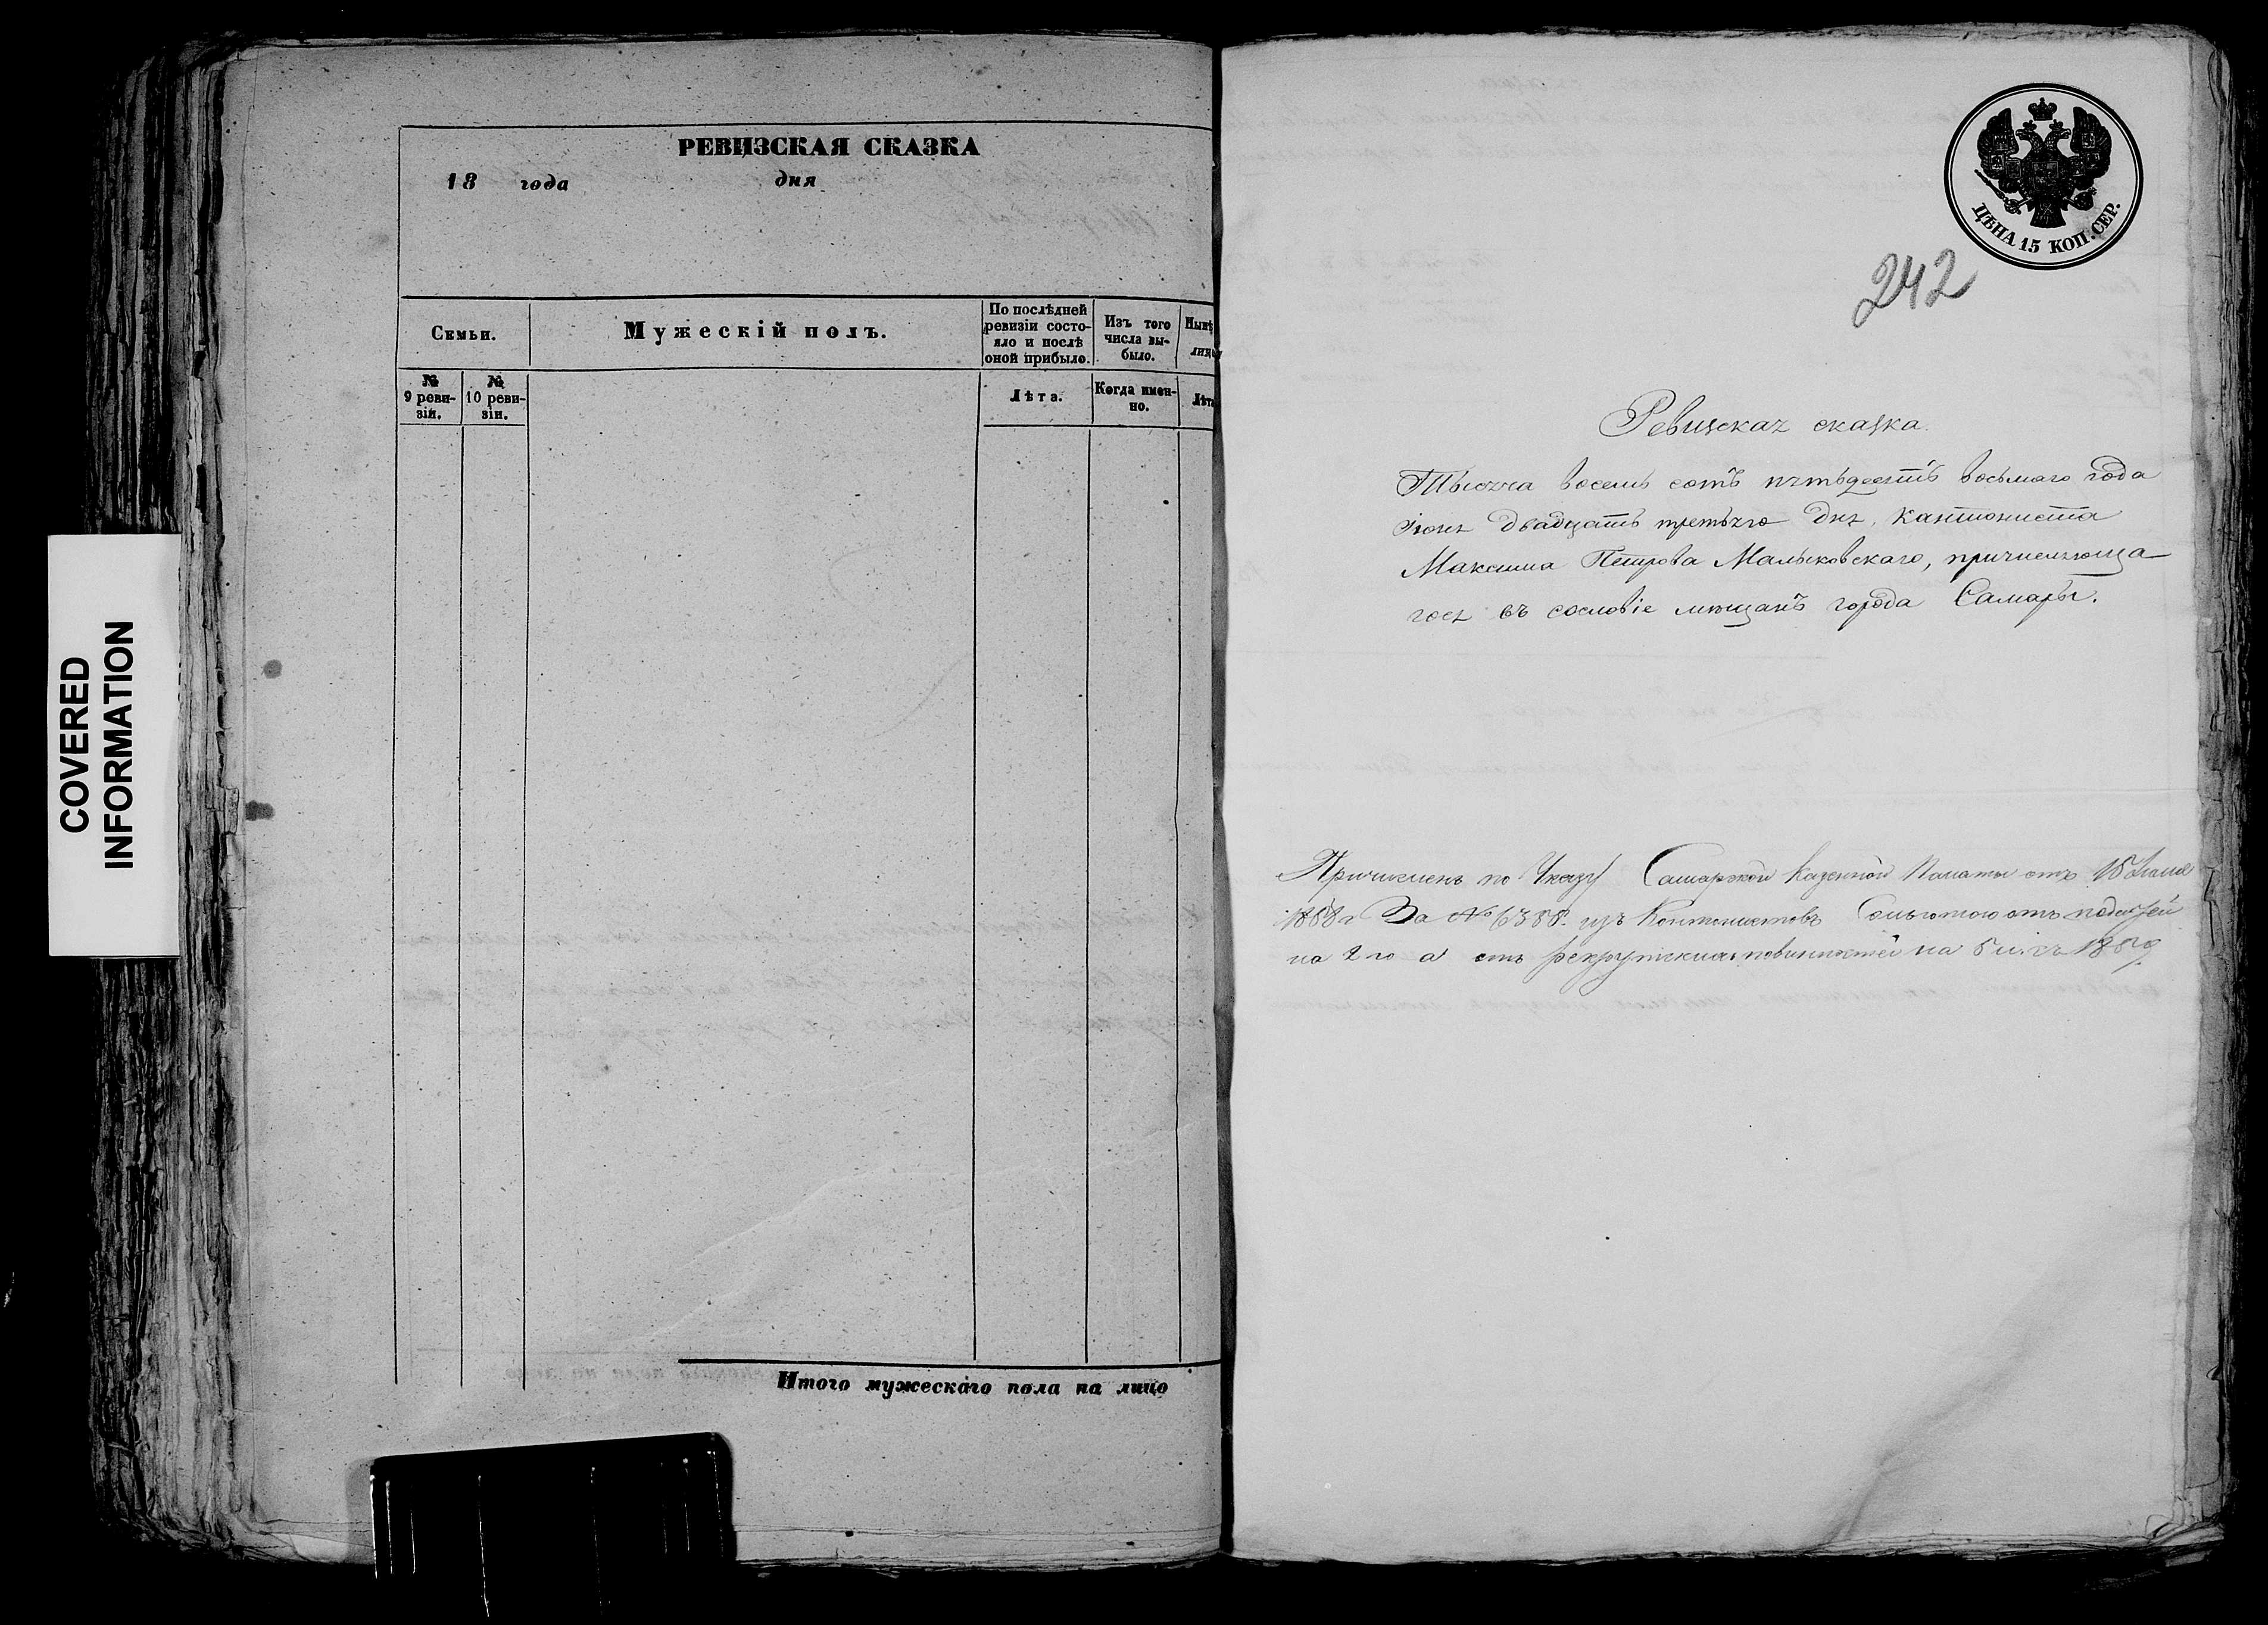 COVERED
INFORMATION
РЕВИЗСКАЯ СКАЗКА
18 года дня
Семьи.
Мужескій полъ.
По послѣдней
ревизіи состо-
яло и послѣ
оной прибыло.
Изъ того
числа вы-
было.
Нынѣ
лицо
№
9 реви-
зіи.
№
10 реви-
зіи.
Лѣта.
Когда имен-
но.
Лѣта
Итого мужескаго пола на лицо
ЦѢНА 15 КОП. СЕР.
242
Ревизская сказка.
Тысяча восемь сотъ пятьдесятъ восьмаго года
Іюня двадцать третьяго дня, кантониста
Максима Петрова Малыковскаго, причисляюща-
гося въ сословіе мѣщанъ города Самары.
Причисленъ по Указу Самарской Казенной Палаты отъ
1858 г За № 6388. изъ Кантонистовъ Сольготою отъ податей
на а отъ рекрутской повинности на 1859